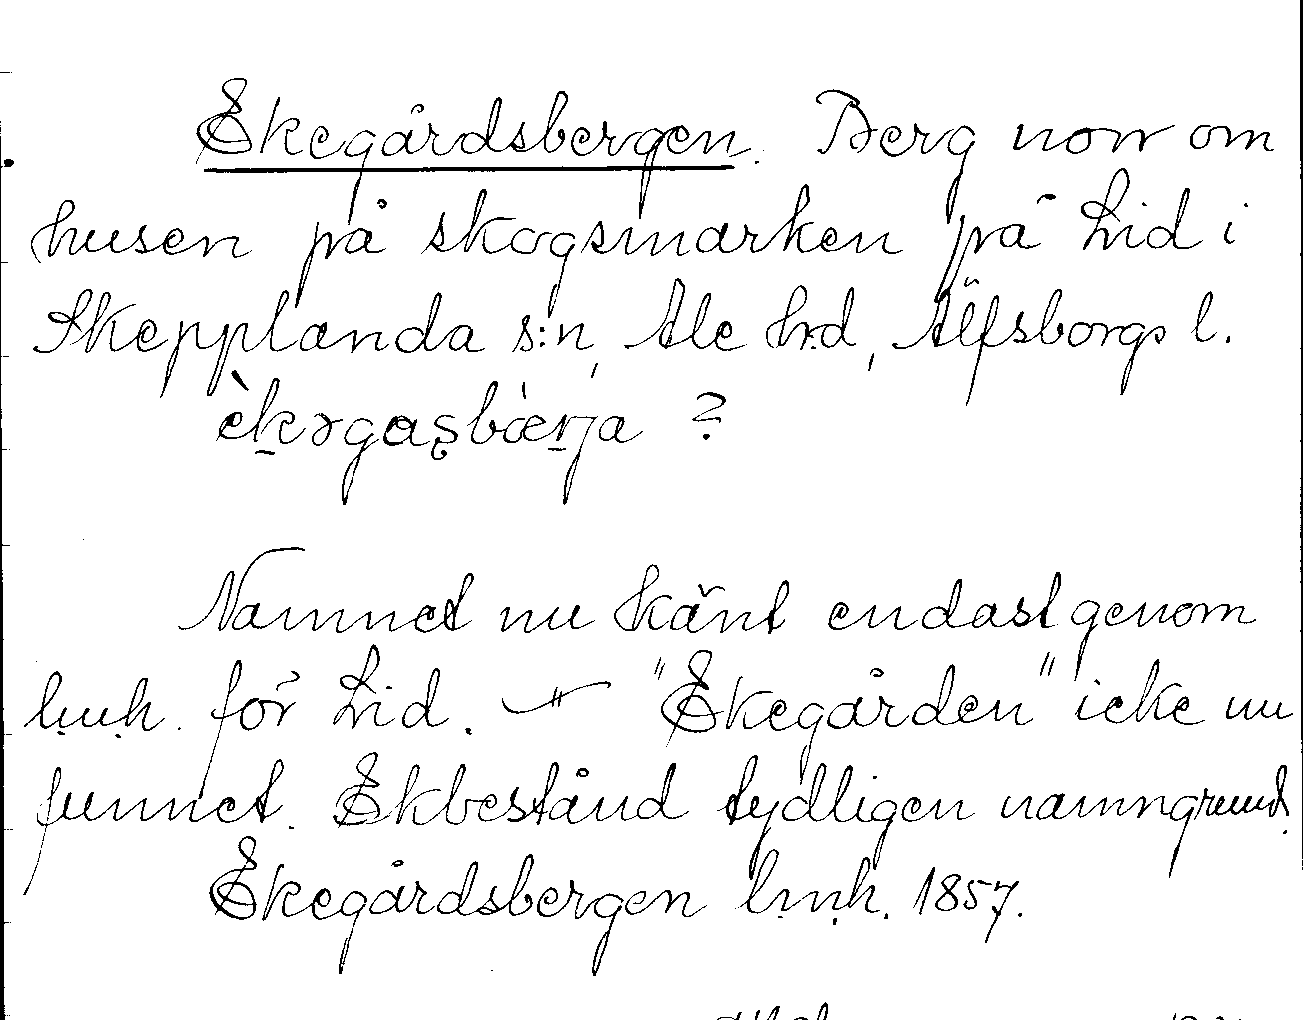 Ekegårdsbergen. Berg norr om
husen på skogsmarken på Lid i
Skepplanda s:n, Ale h:d, Älfsborgs l.
èkəgaşbærja ?
Namnet nu känt endast genom
l.m.h. för Lid. — "Ekegården" icke nu
funnet. Ekbestånd tydligen namngrund.
Ekegårdsbergen l.m.h. 1857.